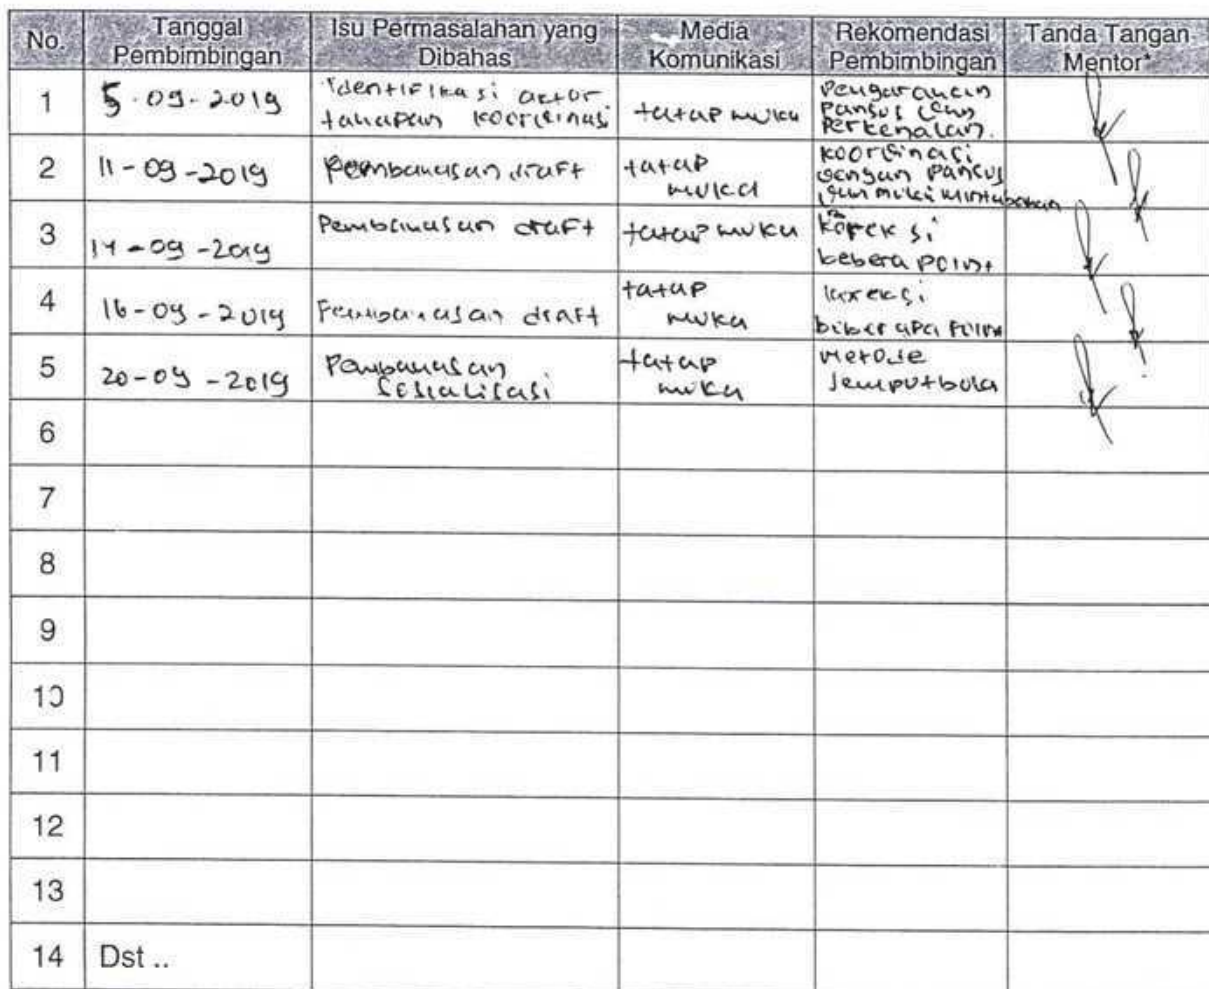 No. Tanggal Pembimbingan Isu Permasalahan yang Dibahas Media Komunikasi Rekomendasi Pembimbingan Tanda Tangan Mentor*
1 5-09-2019 Identifikasi aktor tahapan koordinasi tatap muka Pengarahan Pansus dan Perkenalan.
2 11-09-2019 Pembahasan draft tatap muka koordinasi dengan Pansus dan
3 14-09-2019 Pembahasan draft tatap muka koreksi bebera point
4 16-09-2019 Pembahasan draft tatap muka koreksi biberapa point
5 20-09-2019 Pembahasan Sosialisasi tatap muka Metode Jemput bola
6
7
8
9
10
11
12
13
14 Dst ..